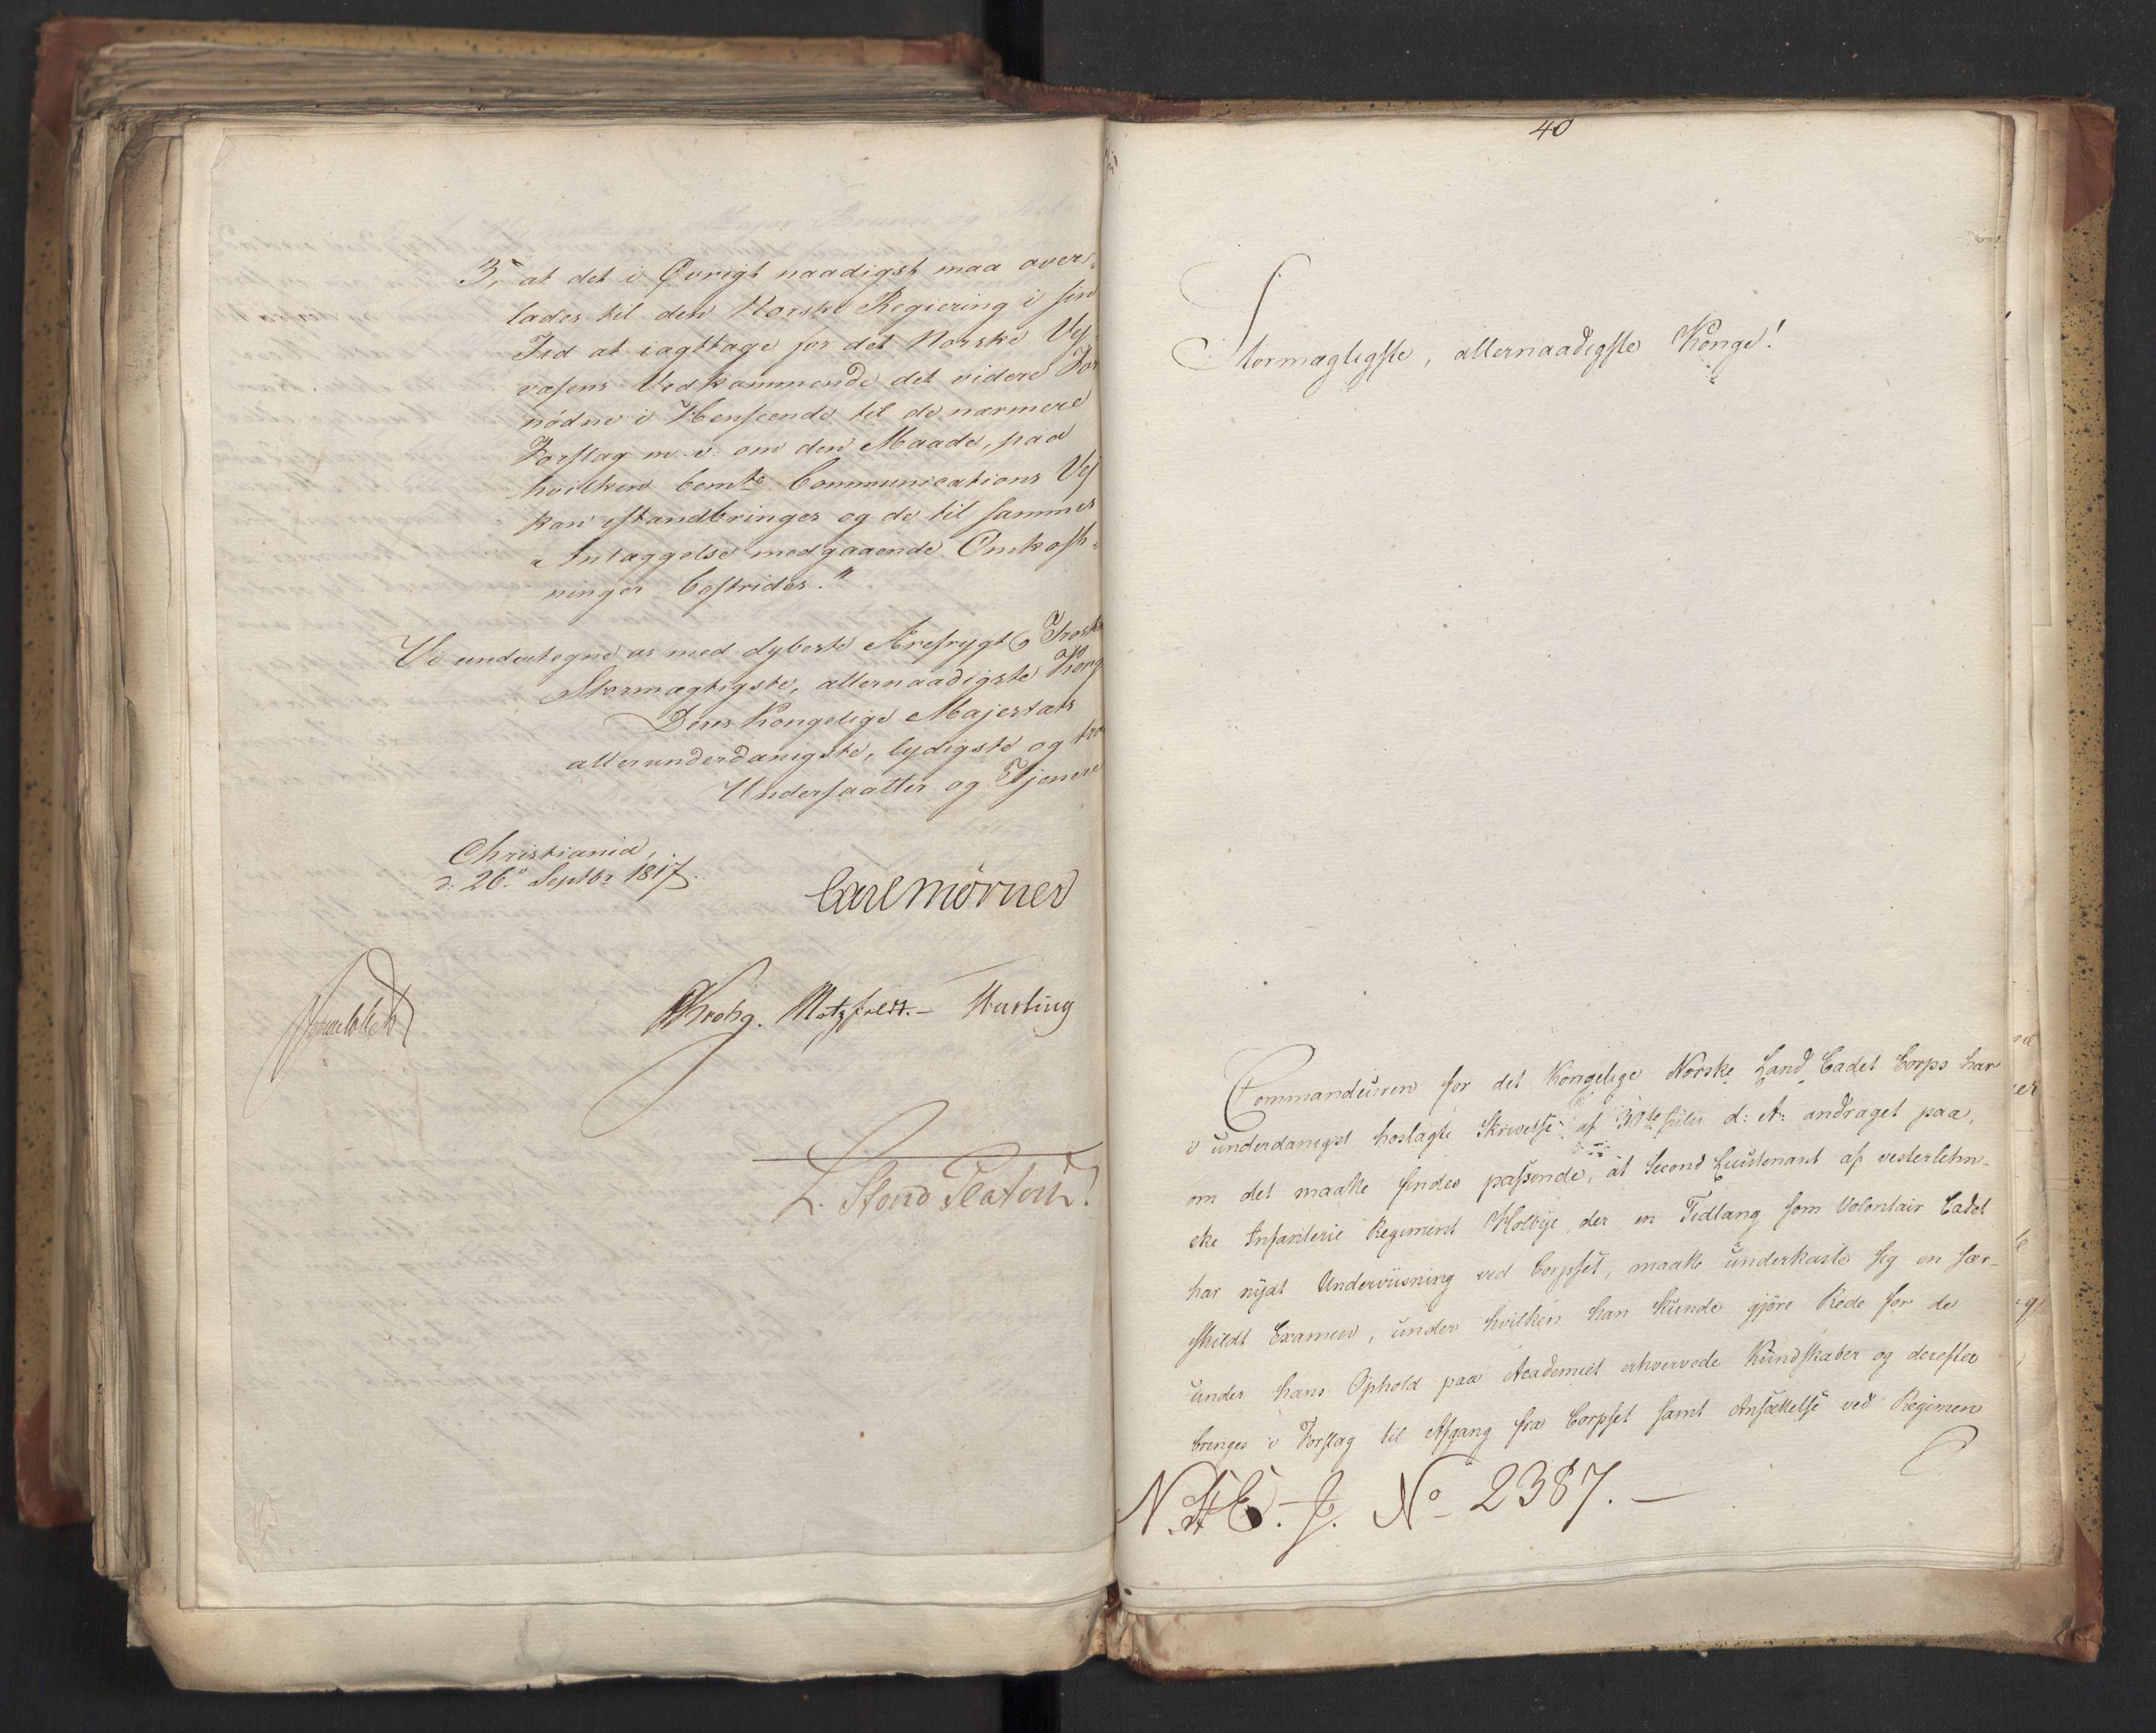 3, at det i Øvrigt naadigst maa over-
lades til den Norske Regiering i sin
Tid at iagttage for det Norske Vej-
væsens Vedkommende det videre For
nødne i Henseende til de nærmere
Forslag m. v. om den Maade, paa
hvilken bemte Communications Vej
kan istandbringes og de til sammes
Anlæggelse medgaaende Omkost-
ninger bestrides."
Vi undertegne os med dybeste Ærefrygt og Trosk
Stormægtigste, allernaadigste Kong
Deres Kongelige Majestæts
allerunderdanigste, lydigste og tro
Undersaatter og Tjenere
Christiania,
d: 26. Septbr 1817.
Carl Mörner
Krohg. Motzfeldt.-
L. Stoud Platou
40
Stormægtigste, allernaadigste Konge!
Commandeuren for det Kongelige Norske Land Cadet Corps har
i underdanigst hoslagte Skrivelse af 30te Juli d: A: andraget paa,
om det maatte findes passende, at Second Lieutenant af vesterlehn-
ske Infanterie Regiment Holbye, der en Tidlang som Volontair Cadet
har nydt Underviisning ved Corpset, maatte underkaste sig en sær-
skildt Examen, under hvilken han kunde gjöre Rede for de
under hans Ophold paa Academiet erhvervede Kundskaber og derefter
bringes i Forslag til Afgang fra Corpset samt Ansættelse ved Regimen
No 2387.-